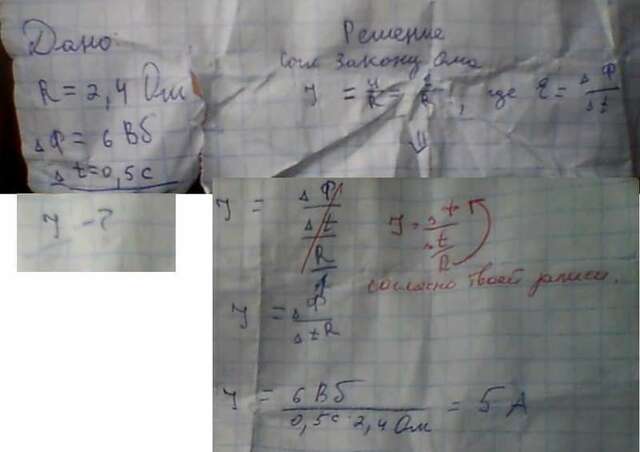 Дано:
R = 2,4 Ом
ΔΦ = 6 Вб
Δt = 0,5 с
I - ?
Решение
Согл Закону Ома
I = U/R = ε/R, где ε = ΔΦ/Δt
I = ΔΦ/Δt/R
согласно твоей записи.
I = ΔΦ/ΔtR
I = 6 Вб/0,5с 2,4 Ом = 5 А